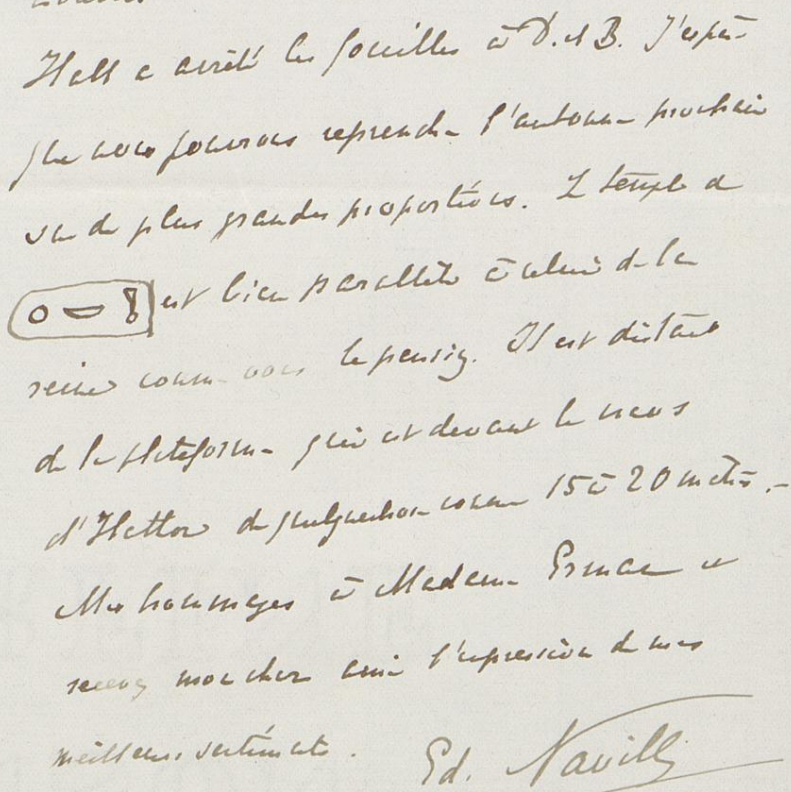 Hall a arrêté les fouilles à D. el B. J'espère
que nous pourrons reprendre l'automne prochain
sur de plus grandes proportions. Le temple de
𓍹𓇳𓎟𓄤𓍺 est bien parallèle à celui de la
reine comme vous le pensiez. Il est distant
de la plateforme qui est devant le naos
d'Hathor de quelque chose comme 15 à 20 mètres.–
Mes hommages à Madame Erman et
recevez mon cher ami l'expression de mes
meilleurs sentiments.
Ed. Naville